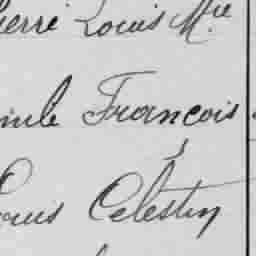 ierre Louis Mie
mile François
ouis Célestin